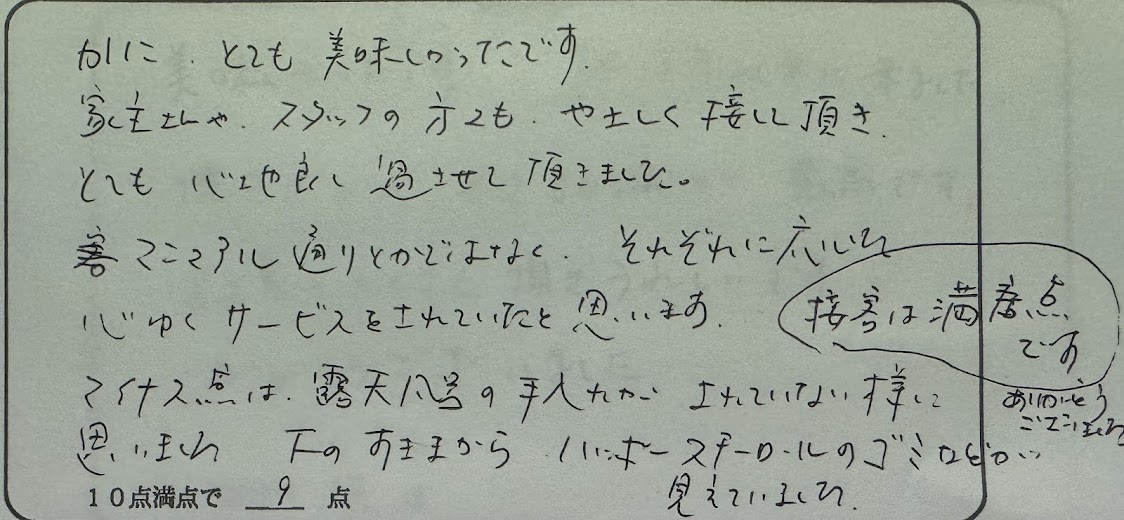 かに、とても美味しかったです。
家主さんや、スタッフの方々も、やさしく接して頂き、
とても心地良く過させて頂きました。
マニュアル通りとかではなく、それぞれに応じた
心ゆくサービスをされていたと思います。
接客は満点
です
ありがとう
ございました
マイナス点は、露天風呂の手入れがされていない様に
思いました 下のすきまから、ハッポースチーロールのゴミなどが
見えていました
10点満点で 9 点